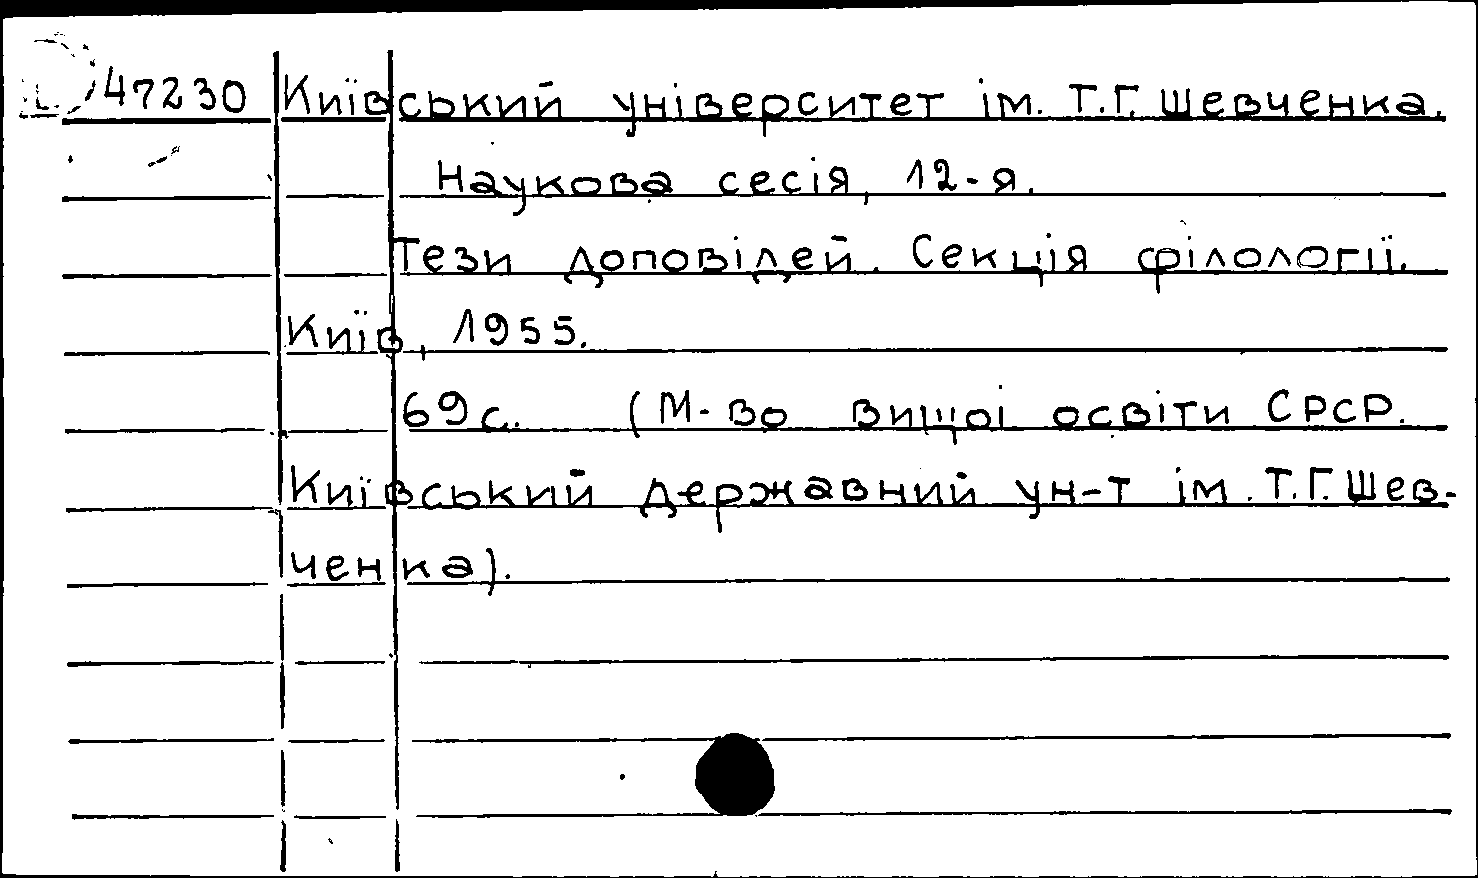 47230 Київський університет ім. Т.Г. Шевченка.
Наукова сесія, 12-я.
Тези доповідей. Секція філології.
Київ, 1955.
69 с. (М-во вищоі освіти СРСР.
Київський державний ун-т ім. Т.Г. Шев-
ченка).